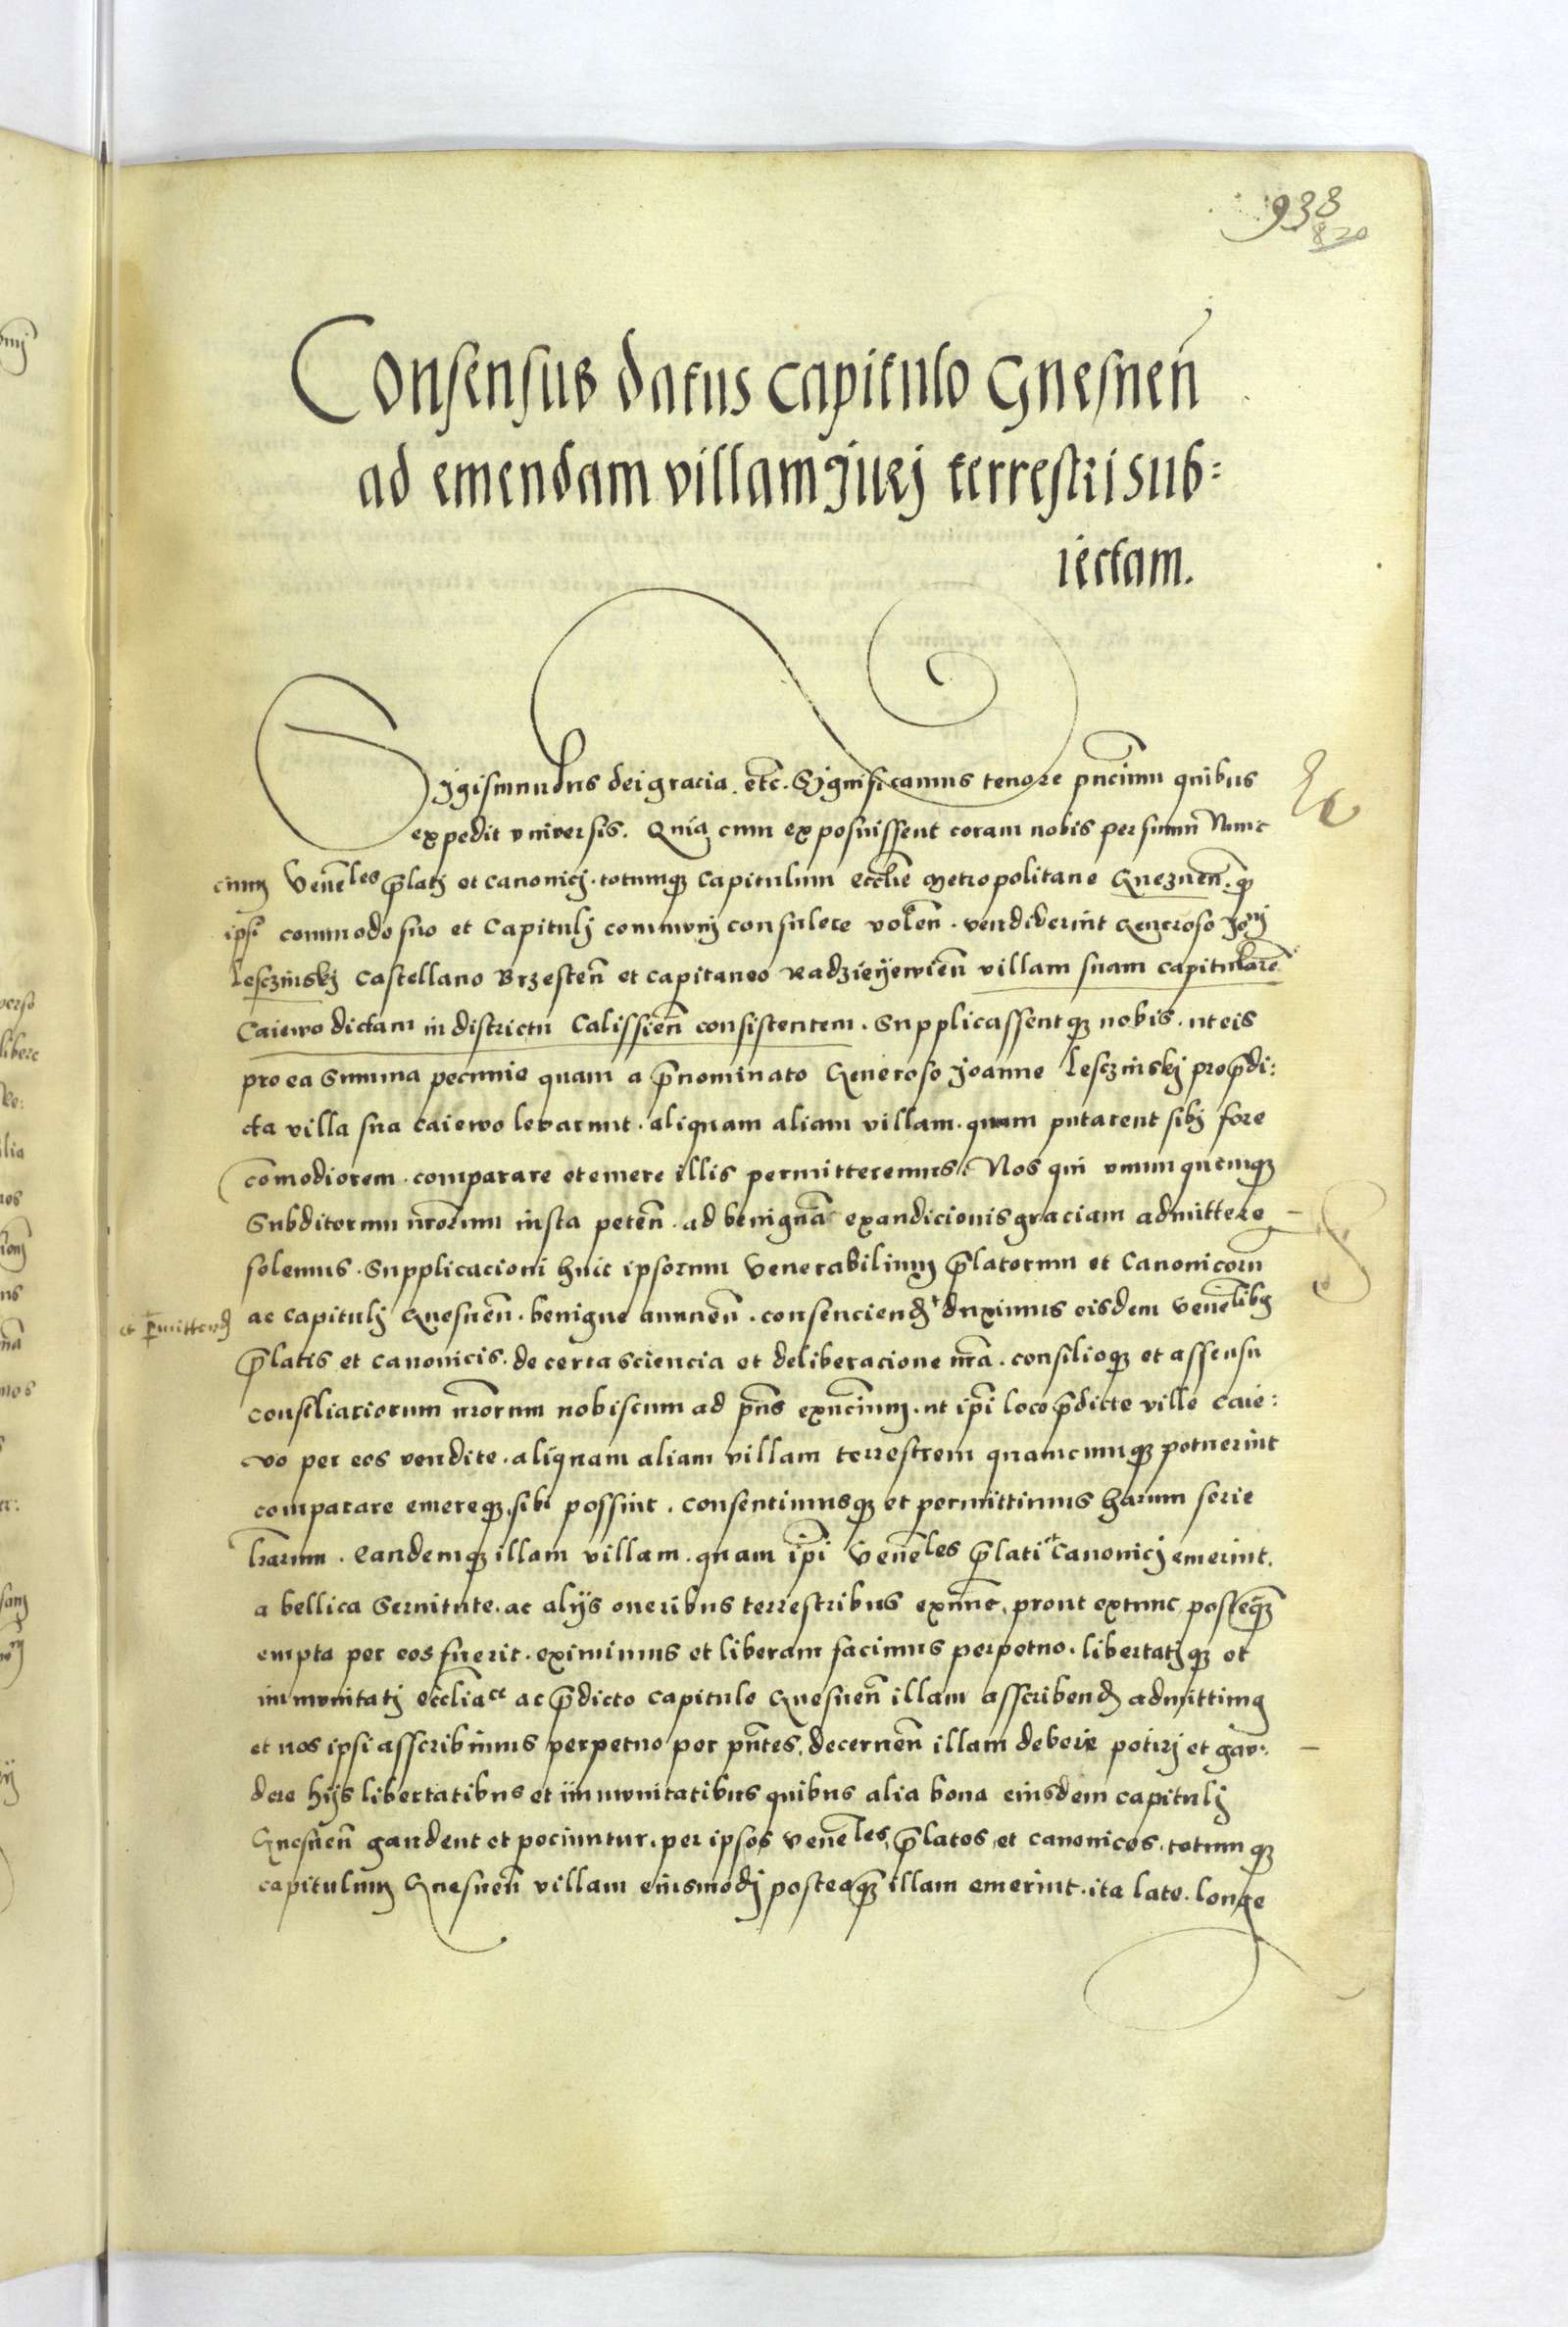 938
820
Consensus datus Capitulo Gnesnen̄
ad emendam villam Jurj terrestri sub=
iectam.
Sigismundus dei gracia. etc̄. Significamus tenore pn̄cium quibus
expedit vniversis. Quia cum exposuissent coram nobis per suum Nunc
cium Ven̄les p̄latj et canonicj. totumqꝫ Capitulum eccl̄ie Metropolitane Gneznen̄. qꝫ
ipsi commodo suo et Capitulj communj consulere volen̄. vendiderint Generoso Jo͞nj
Lesczinskj Castellano Brzesten̄ et capitaneo Radzieyewien̄ villam suam capitularē
Caiewo dictam in districtu Calissien̄ consistentem. Supplicassentqꝫ nobis. ut eis
pro ea Summa pecunie quam a p̄nominato Generoso Joanne Lesczinskj pro p̄di:
cta villa sua Caiewo levarunt. aliquam aliam villam. quam putarent sibj fore
com̄odiorem. comparare et emere illis permitteremus. Nos qui vnumquemqꝫ
Subditorum nr̄orum iusta peten̄. ad benignā exaudicionis graciam admittere
solemus. Supplicacioni huic ipsorum Venerabilium p̄latorum et Canonicorū
ac Capitulj Gnesnen̄. benigne annuen̄. consenciend̄ ⁺ duximus eisdem Ven̄libꝫ
et p̲mittend̄
p̄latis et canonicis. de certa sciencia et deliberacione nr̄a. consilioqꝫ et assensu
consiliariorum nr̄orum nobiscum ad pn̄s exn̄cium. ut ip̄i loco p̄dicte ville Caie:
wo per eos vendite. aliquam aliam villam terrestrem quamcumqꝫ potuerint
comparare emereqꝫ. sibi possint. consentimusqꝫ et permittimus harum serie
lr̄arum. Eandemqꝫ illam villam. quam ip̄i Ven̄les p̄lati et Canonicj emerint.
a bellica Servitute. ac alijs oneribus terrestribus exnunc, prout extunc, posteaqꝫ
empta per eos fuerit. eximimus et liberam facimus perpetuo. libertatjqꝫ et
immunitatj eccl̄iace ac p̄dicto Capitulo Gnesnen̄ illam asscribend̄ admittimꝫ
et nos ipsi asscribimus perpetuo per pn̄tes. decernen̄ illam debere potirj et gau:
dere hijs libertatibus et immunitatibus quibus alia bona eiusdem capitulj
Gnesnen̄ gaudent et pociuntur. per ipsos Ven̄les, p̄latos, et canonicos. totumqꝫ
capitulum Gnesnen̄ villam eiusmodj posteaqꝫ illam emerint. ita late. longe